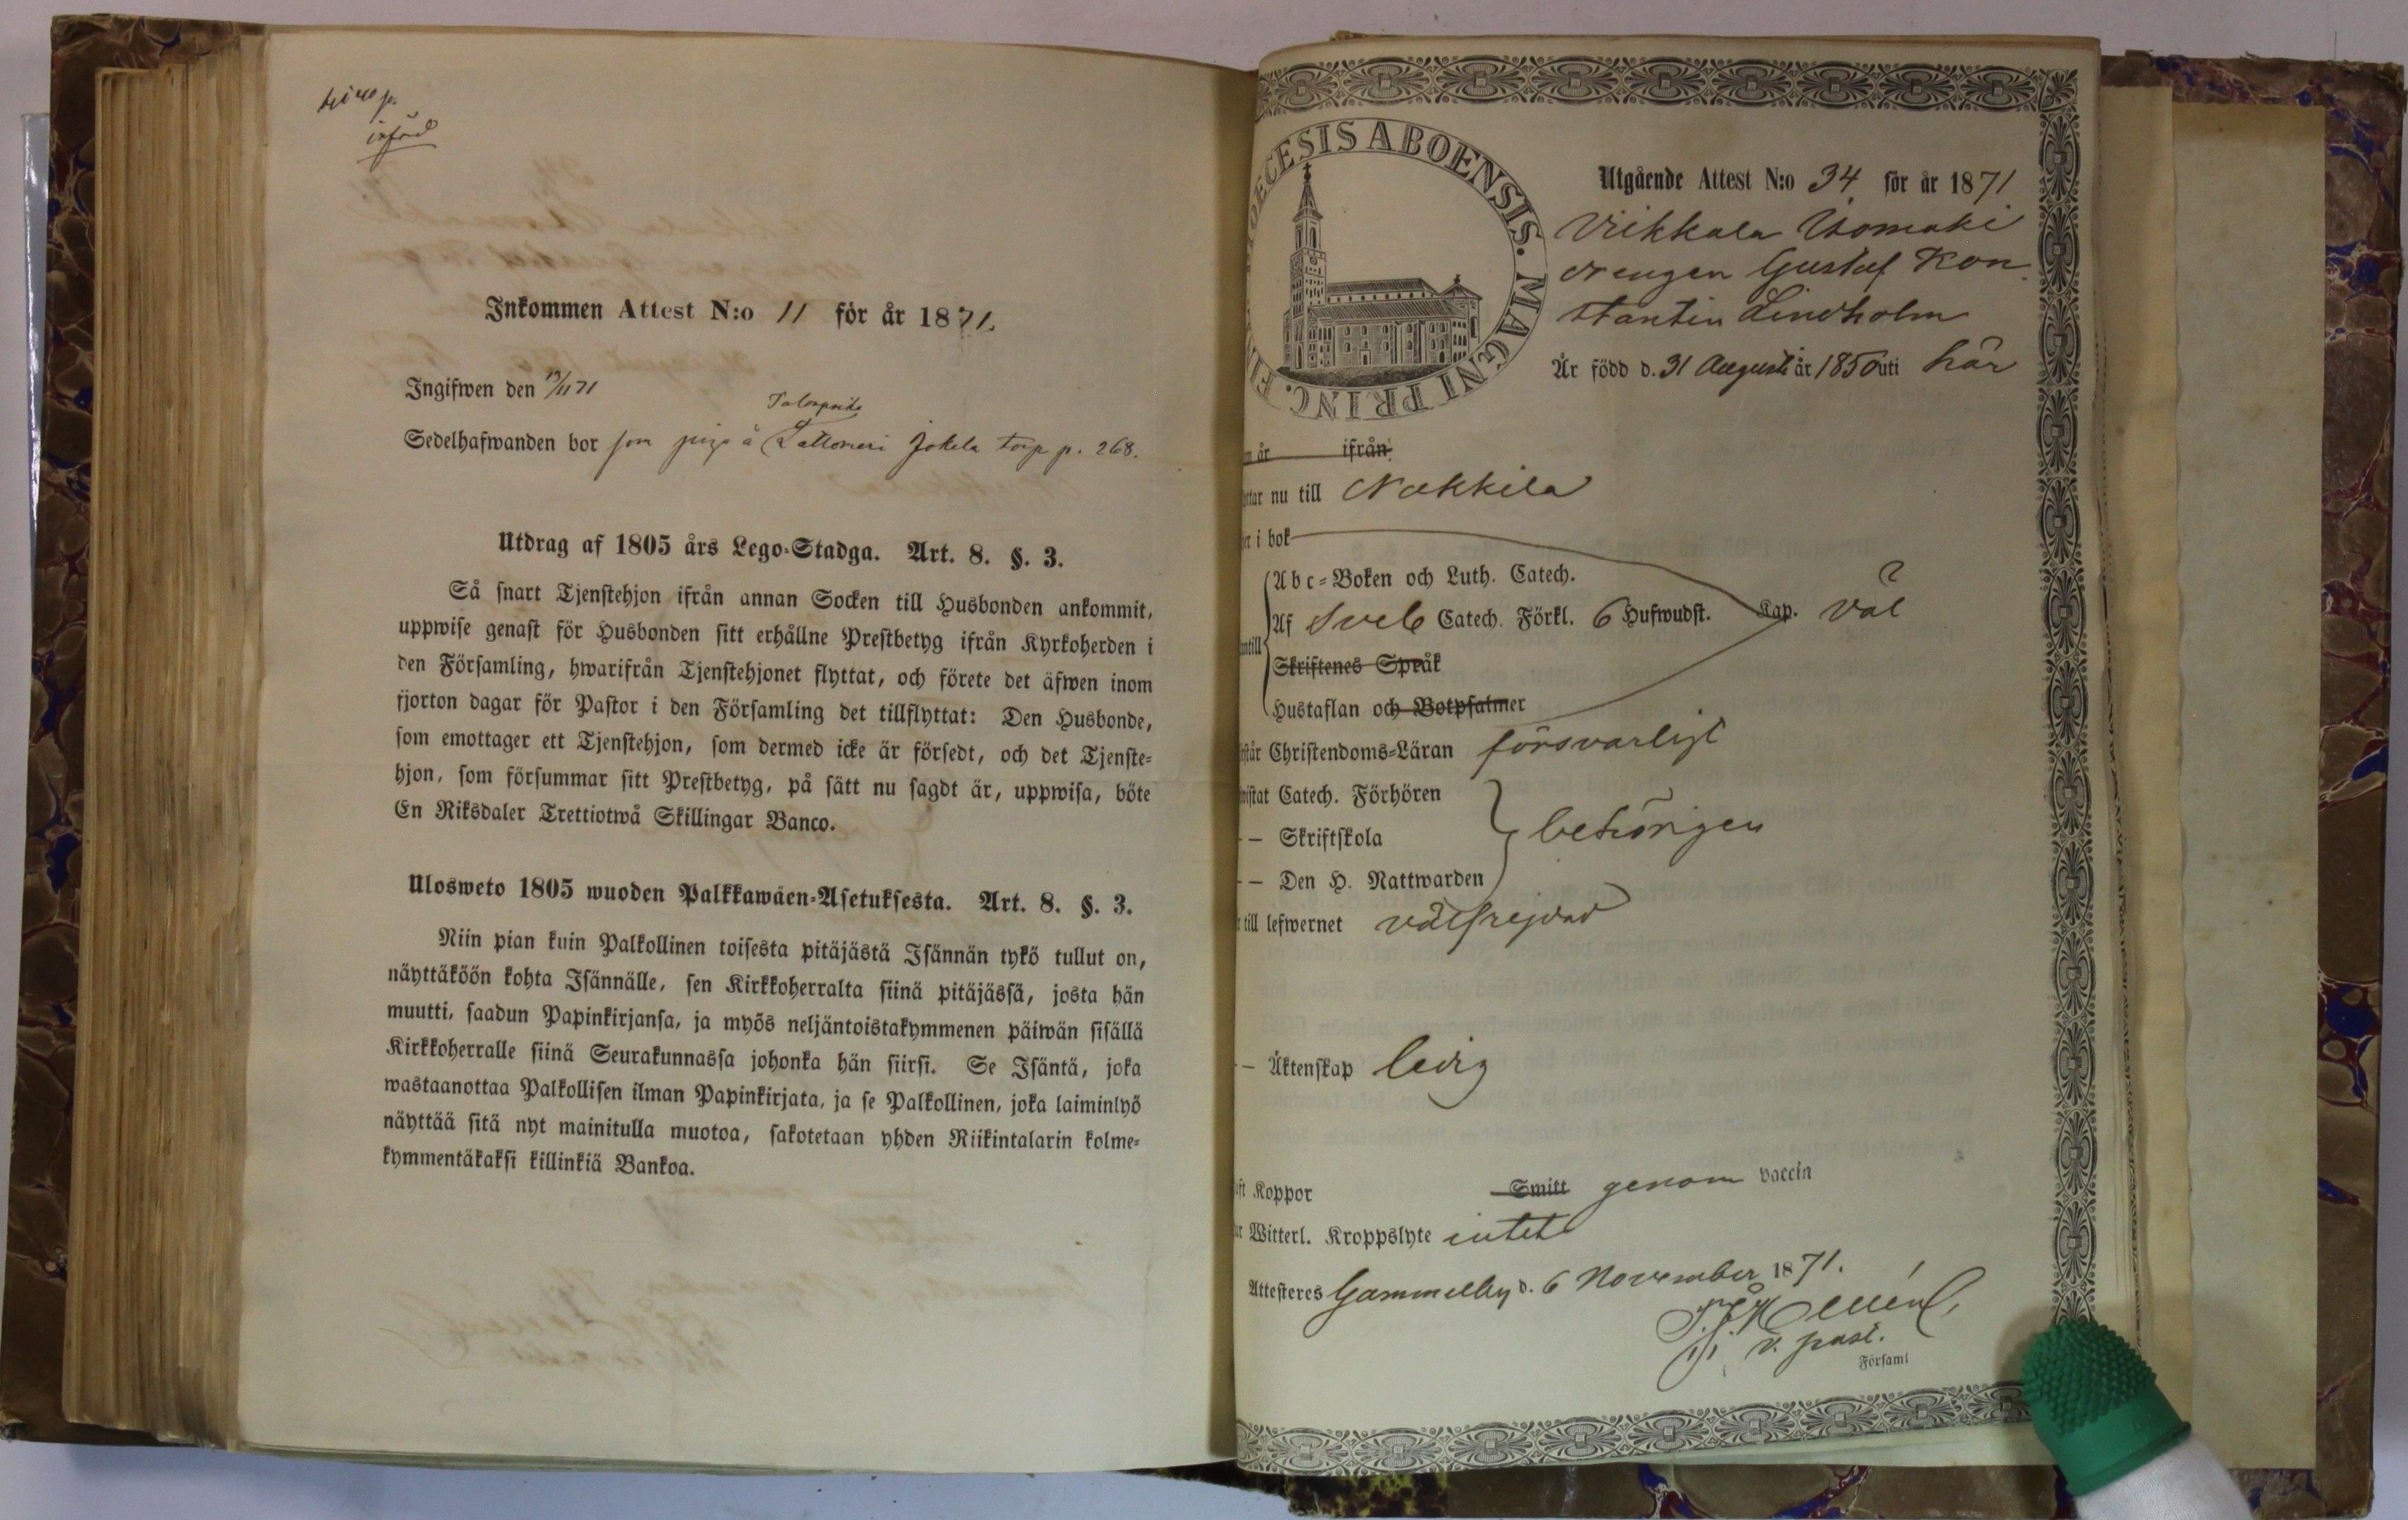 införd
Inkommen Attest N:o 11 för år 1871.
Ingifwen den 19/11 71
Sedelhafwanden bor som piga å Lattomeri Jokela torp p. 268.
Utdrag af 1805 års Lego-Stadga. Art. 8. §. 3.
Så snart Tjenstehjon ifrån annan Socken till Husbonden ankommit,
uppwise genast för Husbonden sitt erhållne Prestbetyg ifrån Kyrkoherden i
den Församling, hwarifrån Tjenstehjonet flyttat, och förete det äfwen inom
fjorton dagar för Pastor i den Församling det tillflyttat: Den Husbonde,
som emottager ett Tjenstehjon, som dermed icke är försedt, och det Tjenste-
hjon, som försummar sitt Prestbetyg, på sätt nu sagdt är, uppwisa, böte
En Riksdaler Trettiotwå Skillingar Banco.
Ulosweto 1805 wuoden Palkkawäen-Asetuksesta. Art. 8. §. 3.
Niin pian kuin Palkollinen toisesta pitäjästä Isännän tykö tullut on,
näyttäköön kohta Isännälle, sen Kirkkoherralta siinä pitäjässä, josta hän
muutti, saadun Papinkirjansa, ja myös neljäntoistakymmenen päiwän sisällä
Kirkkoherralle siinä Seurakunnassa johonka hän siirsi. Se Isäntä, joka
wastaanottaa Palkollisen ilman Papinkirjata, ja se Palkollinen, joka laiminlyö
näyttää sitä nyt mainitulla muotoa, sakotetaan yhden Riikintalarin kolme-
kymmentäkaksi killinkiä Bankoa.
ŒCESIS ABOENSIS. MAGNI PRINC.
Utgående Attest N:o 34 för år 1871
Viikkala Isomäki
drengen Gustaf Kon
stantin Lindholm
Är född d. 31 Augusti år 1850 uti här
år ifrån
ttar nu till Nakkila
er i bok
Abc-Boken och Luth. Catech.
Af Sveb Catech. Förkl. 6 Hufwudst. Kap. väl
antill
Skriftenes Språk
Hustaflan och Botpsalmer
står Christendoms-Läran försvarligt
wistat Catech. Förhören
— Skriftskola behörigen
— Den H. Nattwarden
till lefwernet välfrejdad
— Äktenskap ledig
aft Koppor Smitt genom vaccin
ar Witterl. Kroppslyte intet
Attesteres Gammelby d. 6 November 1871.
v. past.
Församl